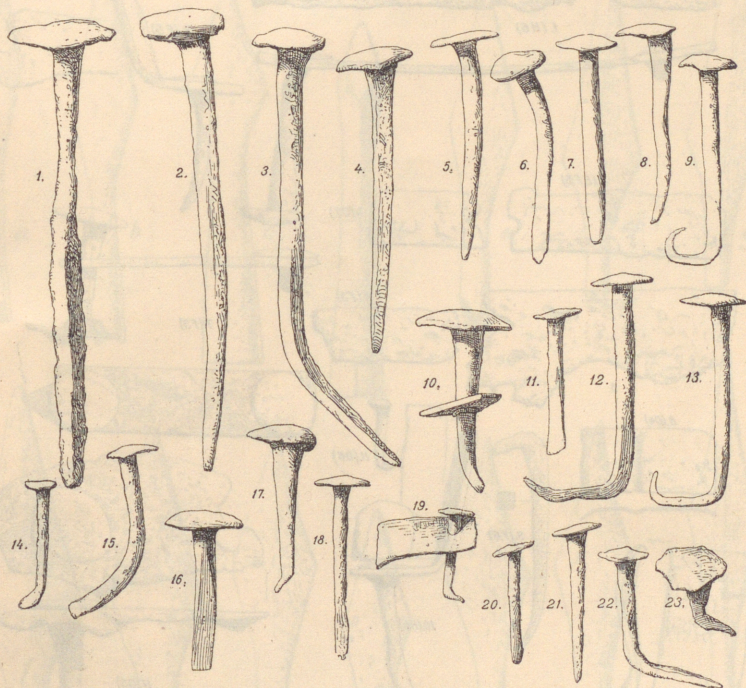 1.
2.
3.
4.
5.
6.
7.
8.
9.
10.
11.
12.
13.
14.
15.
16.
17.
18.
19.
20.
21.
22.
23.